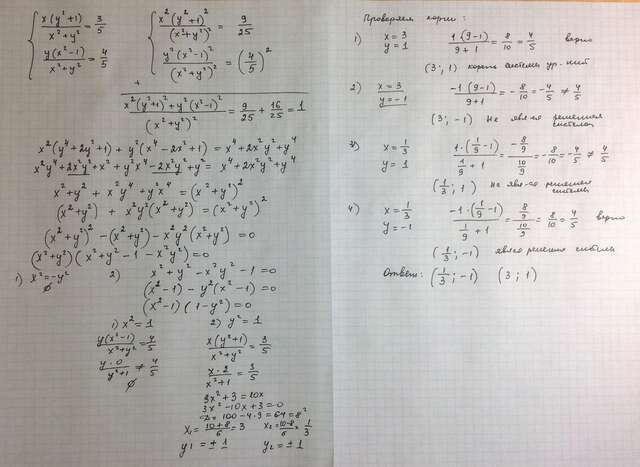 { x(y²+1)/(x²+y²) = 3/5
y(x²-1)/(x²+y²) = 4/5
{ x²(y²+1)²/(x²+y²)² = 9/25
y²(x²-1)²/(x²+y²)² = (4/5)²
+
x²(y²+1)²+y²(x²-1)²/(x²+y²)² = 9/25 + 16/25 = 1
x²(y⁴+2y²+1) + y²(x⁴-2x²+1) = x⁴+2x²y²+y⁴
x²y⁴+2x²y²+x²+y²x⁴-2x²y²+y² = x⁴+2x²y²+y⁴
x²+y² + x²y⁴+y²x⁴ = (x²+y²)²
(x²+y²) + x²y²(x²+y²) = (x²+y²)²
(x²+y²)² - (x²+y²) - x²y²(x²+y²) = 0
(x²+y²)(x²+y²-1-x²y²) = 0
1) x²=-y²
∅
2) x²+y²-x²y²-1=0
(x²-1) - y²(x²-1) = 0
(x²-1)(1-y²) = 0
1) x²=1
y(x²-1)/(x²+y²) = 4/5
y·0/(y²+1) ≠ 4/5
∅
2) y²=1
x(y²+1)/(x²+y²) = 3/5
x·2/(x²+1) = 3/5
3x²+3=10x
3x²-10x+3=0
D=100-4·9=64=8²
x₁=(10+8)/6=3 x₂=(10-8)/6=1/3
y₁=±1 y₂=±1
Проверяем корни:
1) x=3
y=1
1(9-1)/(9+1) = 8/10 = 4/5 верно
(3;1) корень системы ур-ний
2) x=3
y=-1
-1(9-1)/(9+1) = -8/10 = -4/5 ≠ 4/5
(3;-1) не явл-ся решением
системы
3) x=1/3
y=1
1·(1/9-1)/(1/9+1) = (-8/9)/(10/9) = -8/10 = -4/5 ≠ 4/5
(1/3;1) не явл-ся решением
системы
4) x=1/3
y=-1
-1·(1/9-1)/(1/9+1) = (8/9)/(10/9) = 8/10 = 4/5 верно
(1/3;-1) явл-ся решения системы
Ответ: (1/3;-1) (3;1)